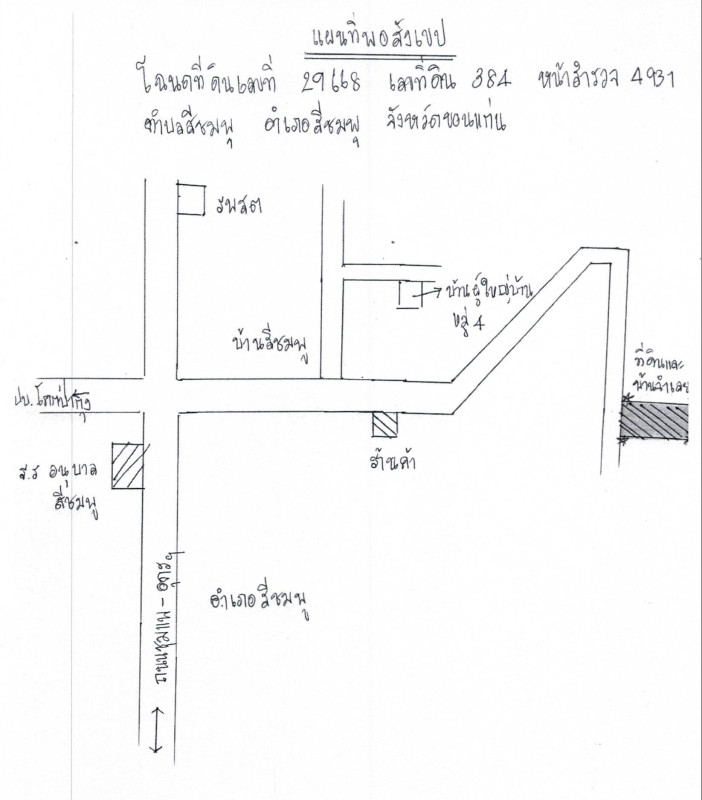 แผนที่พอสังเขป
โฉนดที่ดินเลขที่ 29668 เลขที่ดิน 384 หน้าสำรวจ 4931
ตำบลสีชมพู อำเภอสีชมพู จังหวัดขอนแก่น
รพสต
บ้านผู้ใหญ่บ้าน
หมู่ 4
บ้านสีชมพู
ที่ดินและ
บ้านจำเลย
ร้านค้า
ร.ร อนุบาล
สีชมพู
ถนนชุมแพ-อุดรฯ
อำเภอสีชมพู